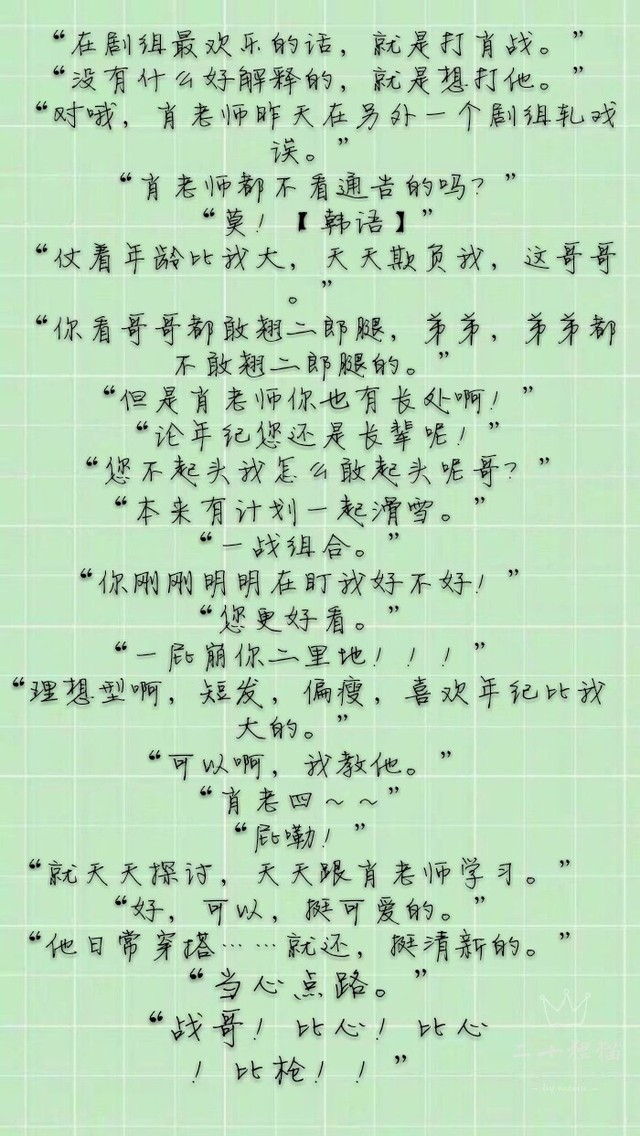 “在剧组最欢乐的话，就是打肖战。”
“没有什么好解释的，就是想打他。”
“对哦，肖老师昨天在另外一个剧组轧戏
诶。”
“肖老师都不看通告的吗？”
“莫！【韩语】”
“仗着年龄比我大，天天欺负我，这哥哥
。”
“你看哥哥都敢翘二郎腿，弟弟，弟弟都
不敢翘二郎腿的。”
“但是肖老师你也有长处啊！”
“论年纪您还是长辈呢！”
“您不起头我怎么敢起头呢哥？”
“本来有计划一起滑雪。”
“一战组合。”
“你刚刚明明在盯我好不好！”
“您更好看。”
“一屁崩你二里地！！！”
“理想型啊，短发，偏瘦，喜欢年纪比我
大的。”
“可以啊，我教他。”
“肖老四～～”
“屁嘞！”
“就天天探讨，天天跟肖老师学习。”
“好，可以，挺可爱的。”
“他日常穿搭……就还，挺清新的。”
“当心点路。”
“战哥！比心！比心
！比枪！！”